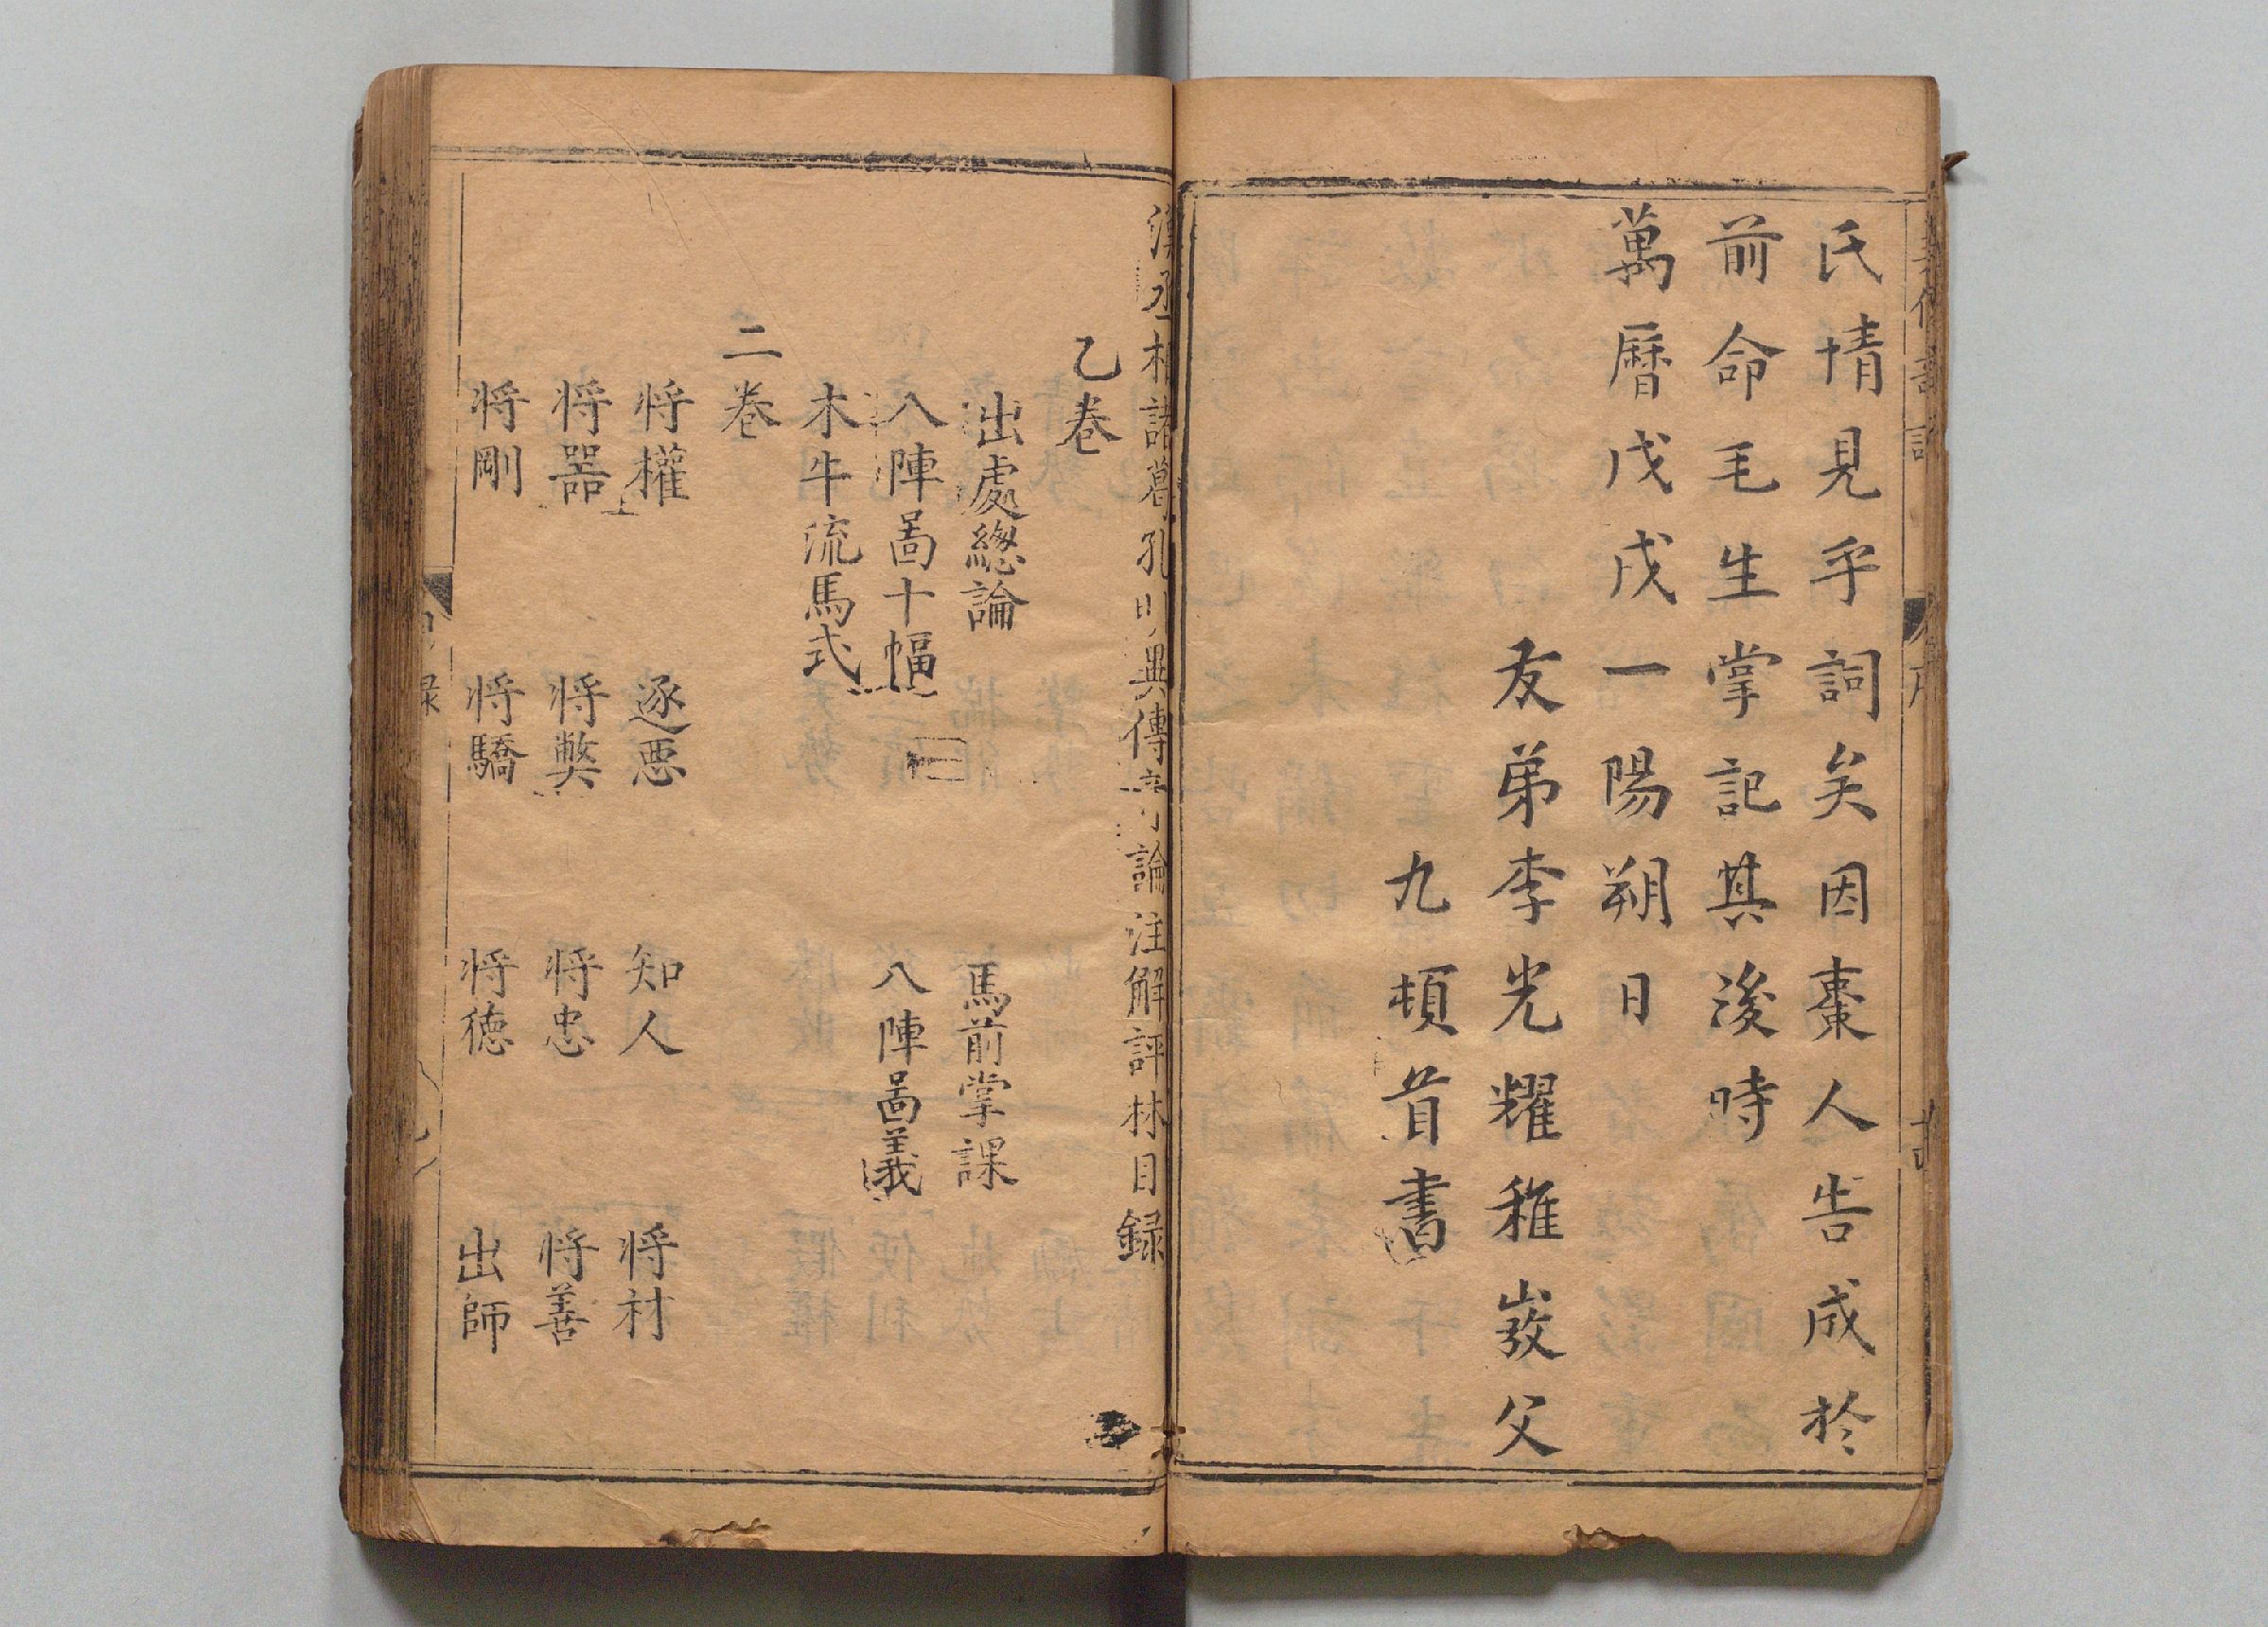 氏情見乎詞矣因棗人告成於
前命毛生掌記其後時
萬曆戊戌一陽朔日
友弟李光耀稚嶷父
九頓首書
漢丞相諸葛孔明異傳 論注解評林目録
乙卷
出處緫論 馬前掌課
八陣啚十幅 八陣啚義
木牛流馬式
二卷
将權 逐惡 知人 将材
将器 将獘 将忠 将善
将剛 将驕 将徳 出師